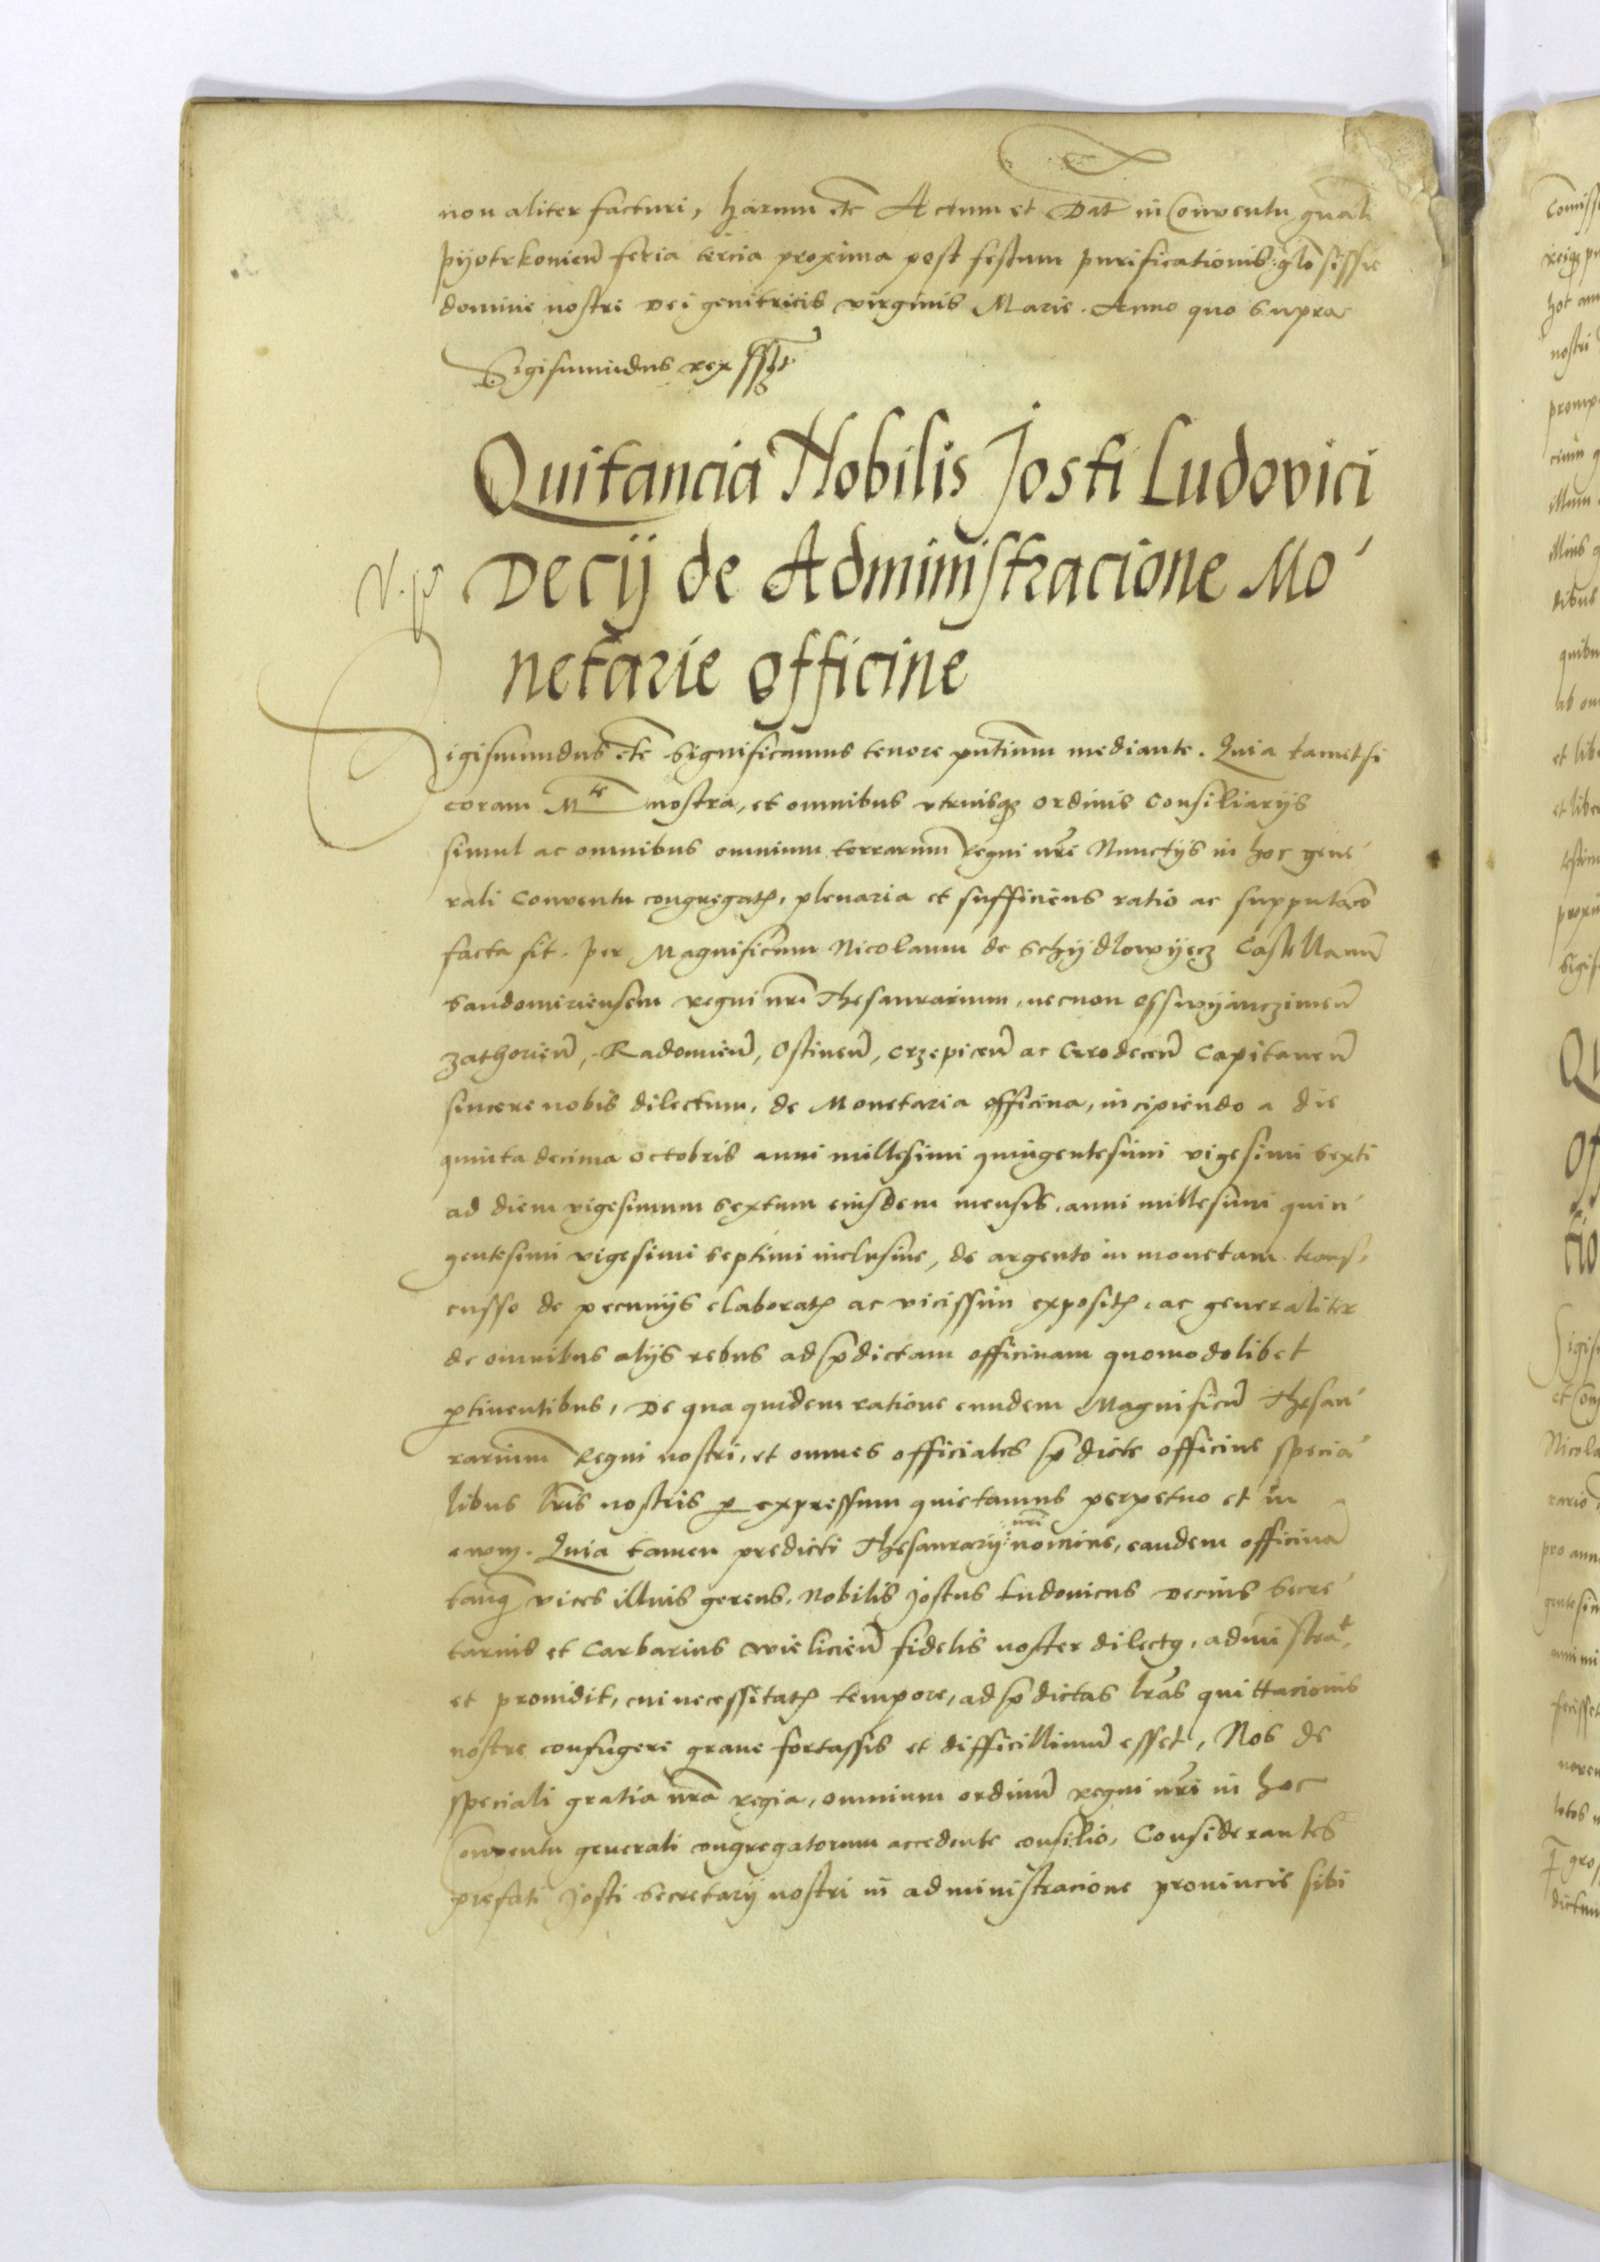 non aliter facturi, harum etc Actum et Dat in Conventu gnali
pyotrkonien feria tercia proxima post festum purificationis glosissie
domine nostre dei genitricis virginis Marie. Anno quo supra
Sigismundus rex sst
Quitancia Nobilis Josti Ludovici
Decij de Administracione Mo
netarie officine
Sigismundus etc Significamus tenore pntium mediante. Quia tametsi
coram Mte nostra, et omnibus vtriusqz ordinis Consiliarijs
simul ac omnibus omnium terrarum Regni nri Nunctijs in hoc gene
rali Conventu congregatis, plenaria et sufficiens ratio ac supputaco
facta sit. per Magnificum Nicolaum de Schijdlowijecz Castellanu
Sandomiriensem regni nri Thesaurarium, necnon Osswijanczimen
Zathorien, Radomien, Ostinen, Crzepicen ac Grodecen Capitaneu
sincere nobis dilectum, de Monetaria officina, incipiendo a die
quinta decima octobris anni millesimi quingentesimi vigesimi sexti
ad diem vigesimum sextum eiusdem mensis, anni millesimi quin
gentesimi vigesimi septimi inclusiue, de argento in monetam trans
cusso de pecunijs elaboratis ac vicissim expositis, ac generaliter
de omnibus alijs rebus ad pdictam officinam quomodolibet
ptinentibus, De qua quidem ratione eundem Magnificu Thesau
rarium Regni nostri, et omnes officiales pdicte officine specia
libus lris nostris p expressum quietamus perpetuo et in
euom. Quia tamen predicti Thesaurarij nri nomine, eandem officina
tanq vices illius gerens, Nobilis Jostus Ludouicus Decius Secre
tarius et Carbarius Wielicien fidelis noster dilectus, administrat
et prouidit, cui necessitatis tempore, ad pdictas lras quittacionis
nostre confugere graue fortassis et difficillimu esset, Nos de
speciali gratia nra regia, omnium ordinu regni nri in hoc
Conventu generali congregatorum accedente consilio, Considerantes
prefati Josti Secretarij nostri in administracione prouincie sibi